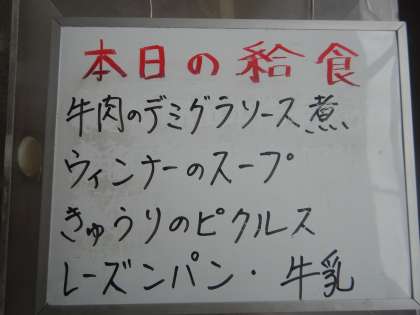 本日の給食
牛肉のデミグラソース煮
ウィンナーのスープ
きゅうりのピクルス
レーズンパン・牛乳